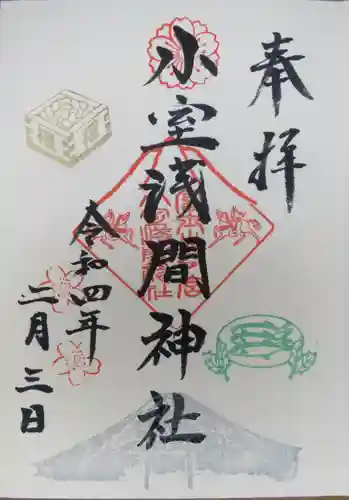 奉拝
小室浅間神社
令和四年
二月三日